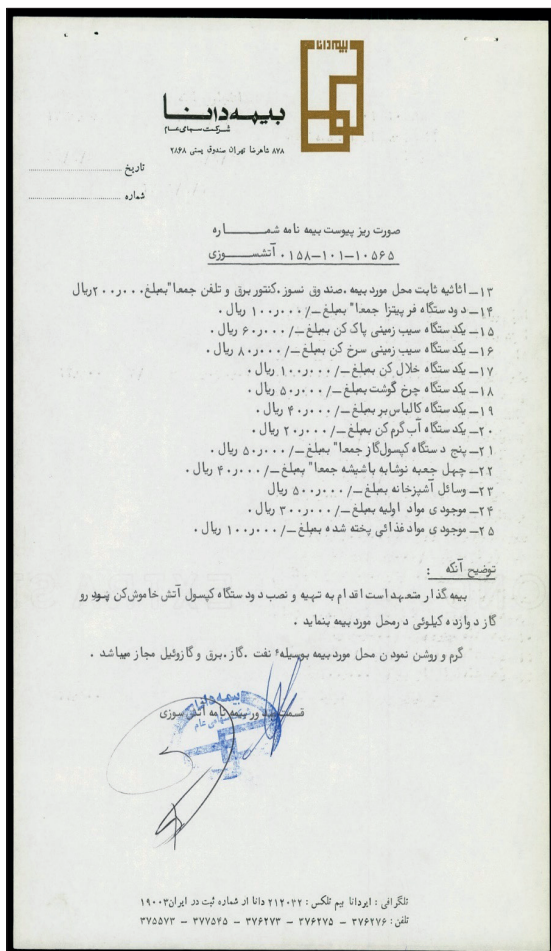 بیمه دانا
بیمه دانا
شرکت سهامی عام
۸۷۸ شاهرضا تهران صندوق پستی ۲۸۶۸
تاریخ
شماره
صورت ریز پیوست بیمه نامه شمـــــاره
۱۰۵۶۵-۱۰۱-۰۱۵۸ آتشـــوزی
۱۳- اثاثیه ثابت محل مورد بیمه .صندوق نسوز .کنتور برق و تلفن جمعا" بمبلغ ۲۰۰ر۰۰۰ ریال
۱۴- دو دستگاه فر پیتزا جمعا" بمبلغ -/۱۰۰ر۰۰۰ ریال .
۱۵- یکدستگاه سیب زمینی پاک کن بمبلغ -/۶۰ر۰۰۰ ریال .
۱۶- یکدستگاه سیب زمینی سرخ کن بمبلغ -/۸۰ر۰۰۰ ریال .
۱۷- یکدستگاه خلال کن بمبلغ -/۱۰۰ر۰۰۰ ریال .
۱۸- یکدستگاه چرخ گوشت بمبلغ -/۵۰ر۰۰۰ ریال .
۱۹- یکدستگاه کالباس بر بمبلغ -/۴۰ر۰۰۰ ریال .
۲۰- یکدستگاه آب گرم کن بمبلغ -/۲۰ر۰۰۰ ریال .
۲۱- پنج دستگاه کپسول گاز جمعا" بمبلغ -/۵۰ر۰۰۰ ریال .
۲۲- چهل جعبه نوشابه باشیشه جمعا" بمبلغ -/۴۰ر۰۰۰ ریال .
۲۳- وسائل آشپزخانه بمبلغ -/۵۰۰ر۰۰۰ ریال
۲۴- موجودی مواد اولیه بمبلغ -/۳۰۰ر۰۰۰ ریال .
۲۵- موجودی مواد غذائی پخته شده بمبلغ -/۱۰۰ر۰۰۰ ریال .
توضیح آنکه :
بیمه گذار متعهد است اقدام به تهیه و نصب دو دستگاه کپسول آتش خاموش کن پودر و
گاز دوازده کیلوئی درمحل مورد بیمه بنماید .
گرم و روشن نمودن محل مورد بیمه بوسیلهٔ نفت .گاز .برق و گازوئیل مجاز میباشد .
بیمه دانا
سهامی عام
قسمت صدور بیمه نامه آتش سوزی
تلگرافی : ایردانا بیم تلکس : ۲۱۲۰۲۲ دانا ار شماره ثبت در ایران ۱۹۰۰۳
تلفن : ۳۷۶۲۷۶ - ۳۷۶۲۷۵ - ۳۷۶۲۷۳ - ۳۷۷۵۴۵ - ۳۷۵۵۷۳